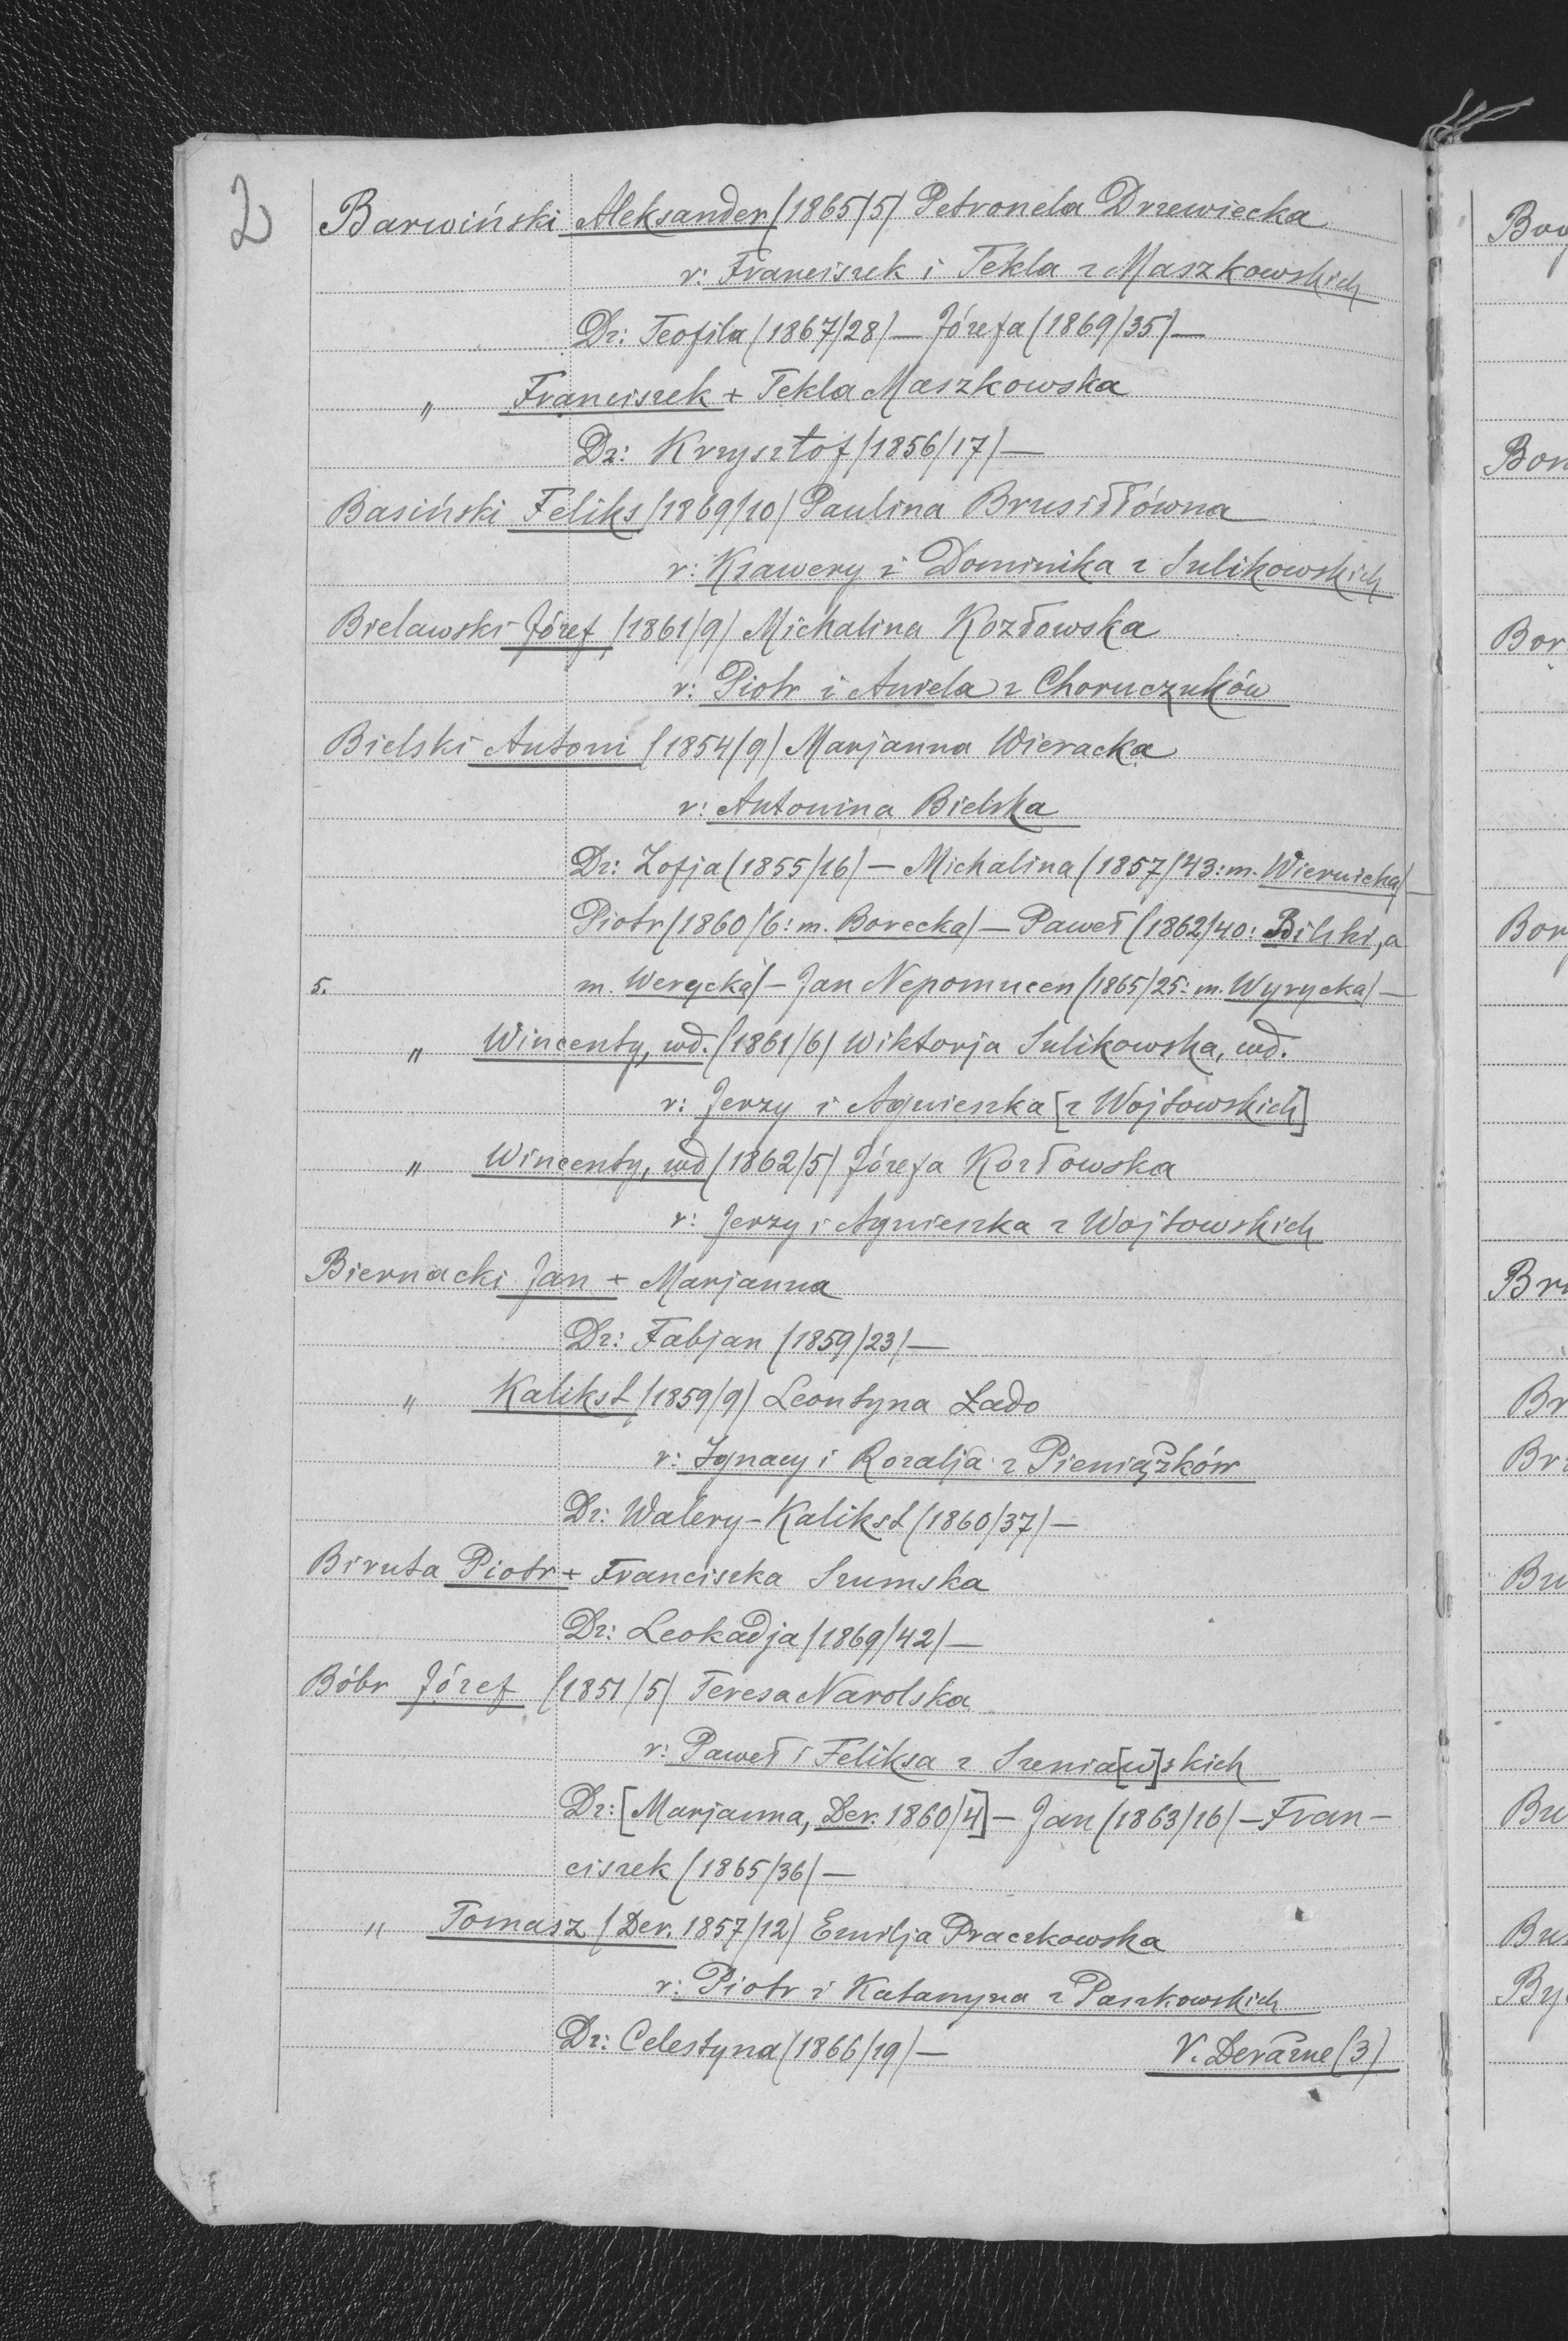 2
Barwiński Aleksander (1865/5) Petronela Drzewiecka
r: Franciszek i Tekla z Maszkowskich
Dz: Teofila (1867/28) — Józefa (1869/35) —
" Franciszek + Tekla Maszkowska
Dz: Krzysztof (1856/17) —
Basiński Feliks (1869/10) Paulina Brusiłłówna
r: Ksawery i Dominika z Sulikowskich
Bielawski Józef (1861/9) Michalina Kozłowska
r: Piotr i Aniela z Choruczuków
Bielski Antoni (1854/9) Marjanna Wieracka
r: Antonina Bielska
Dz: Zofja (1855/16) — Michalina (1857/43: m. Wiernicka) —
Piotr (1860/6: m. Borecka) — Paweł (1862/40: Bilski, a
5. m. Werycka) — Jan Nepomucen (1865/25: m. Wyrycka) —
" Wincenty, wd. (1861/6) Wiktorja Sulikowska, wd.
r: Jerzy i Agnieszka [z Wojtowskich]
" Wincenty, wd (1862/5) Józefa Kozłowska
r: Jerzy i Agnieszka z Wojtowskich
Biernacki Jan + Marjanna
Dz: Fabjan (1859/23) —
" Kalikst (1859/9) Leontyna Łado
r: Ignacy i Rozalja z Pieniążków
Dz: Walery-Kalikst (1860/37) —
Biruta Piotr + Franciszka Szumska
Dz: Leokadja (1869/42) —
Bóbr Józef (1851/5) Teresa Narolska
r: Paweł i Feliksa z Szenia[w]skich
Dz: [Marjanna, Der. 1860/4] — Jan (1863/16) — Fran-
ciszek (1865/36) —
" Tomasz (Der. 1857/12) Emilja Praczkowska
r: Piotr i Katarzyna z Paszkowskich
Dz: Celestyna (1866/19) — V. Deraźne (3)
Bor
Br
Br
Bu
Bu